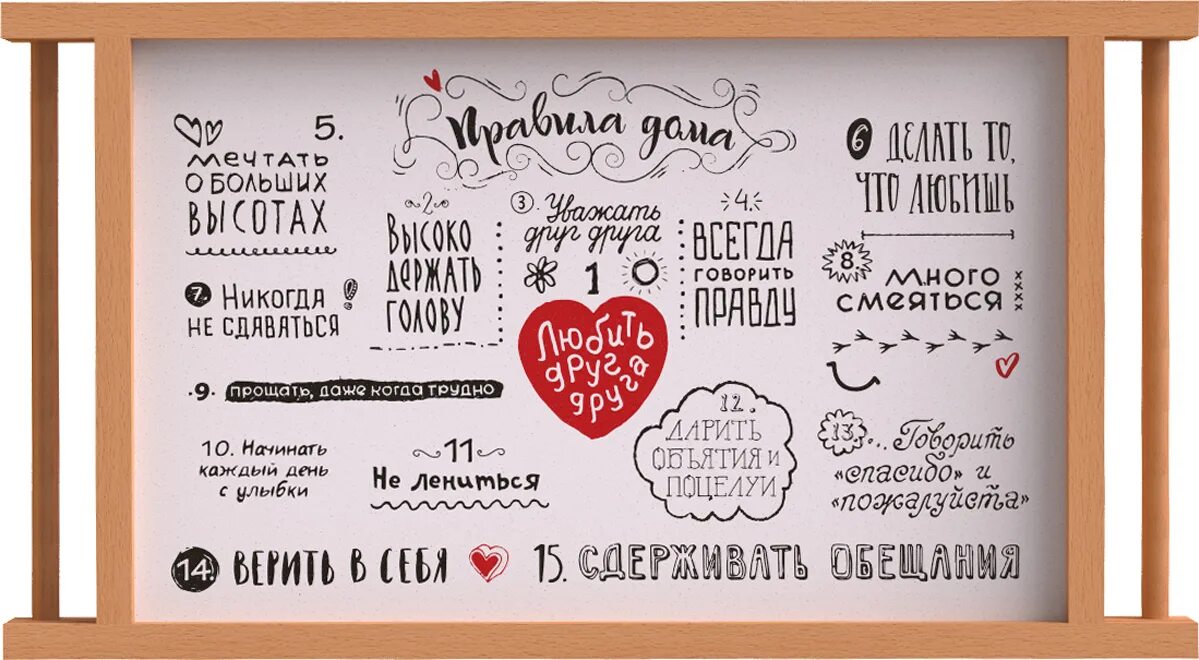 Правила дома
5.
мечтать
о больших
высотах
2.
Высоко
держать
голову
3. Уважать
друг друга
4.
Всегда
говорить
правду
6 Делать то,
что любишь
7. Никогда
не сдаваться
1
Любить
друг
друга
8
много
смеяться
9. прощать, даже когда трудно
10. Начинать
каждый день
с улыбки
11
Не лениться
12.
Дарить
объятия и
поцелуи
13... Говорить
«спасибо» и
«пожалуйста»
14. Верить в себя
15. Сдерживать обещания